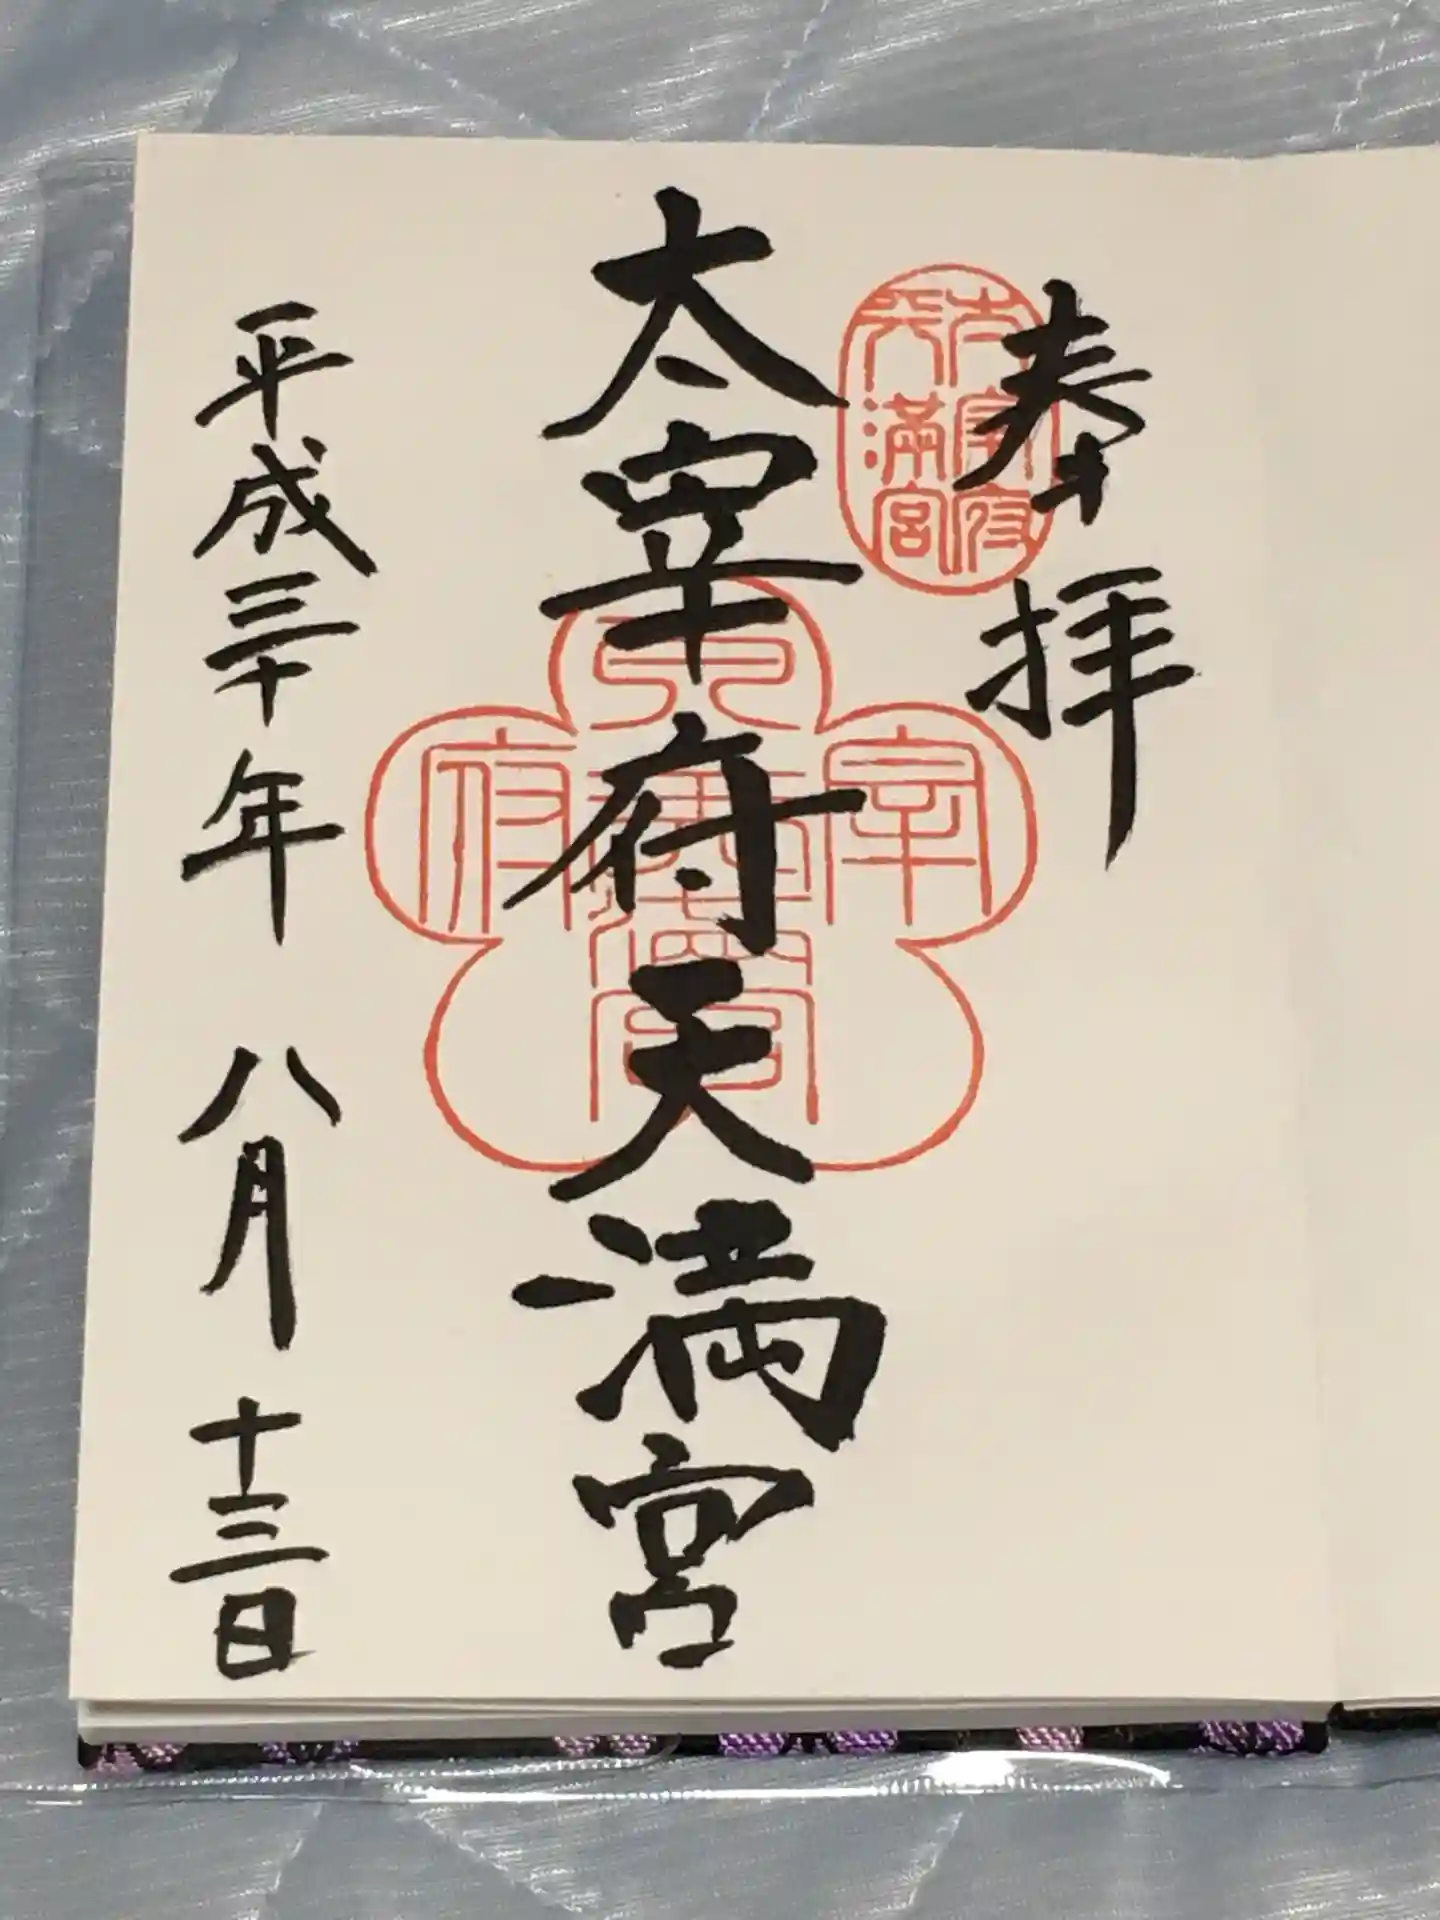 奉拝
太宰府
天満宮
太宰府天満宮
平成三十年 八月 十三日